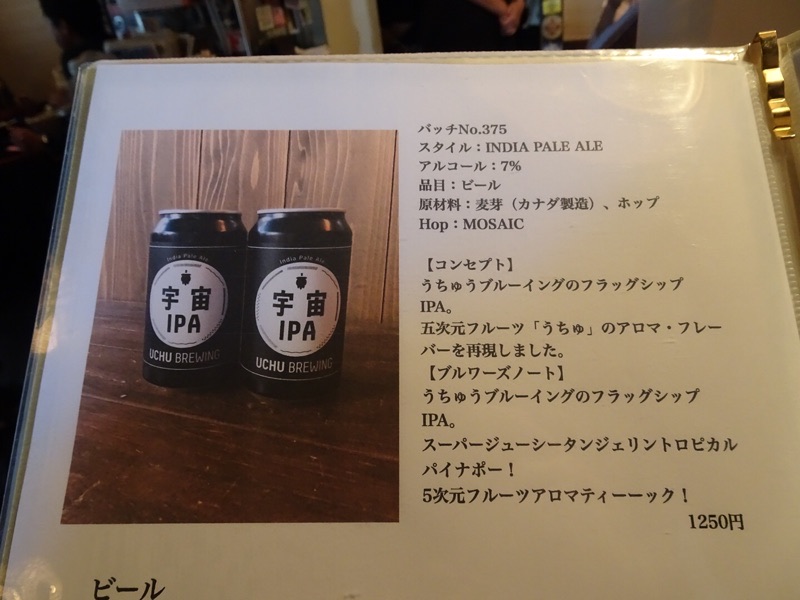 バッチNo.375
スタイル：INDIA PALE ALE
アルコール：7%
品目：ビール
原材料：麦芽（カナダ製造）、ホップ
Hop：MOSAIC
【コンセプト】
うちゅうブルーイングのフラッグシップ
IPA。
五次元フルーツ「うちゅ」のアロマ・フレー
バーを再現しました。
【ブルワーズノート】
うちゅうブルーイングのフラッグシップ
IPA。
スーパージューシータンジェリントロピカル
パイナポー！
5次元フルーツアロマティーーック！
1250円
India Pale Ale
宇宙
IPA
UCHU BREWING
India Pale Ale
宇宙
IPA
UCHU BREWING
ビール